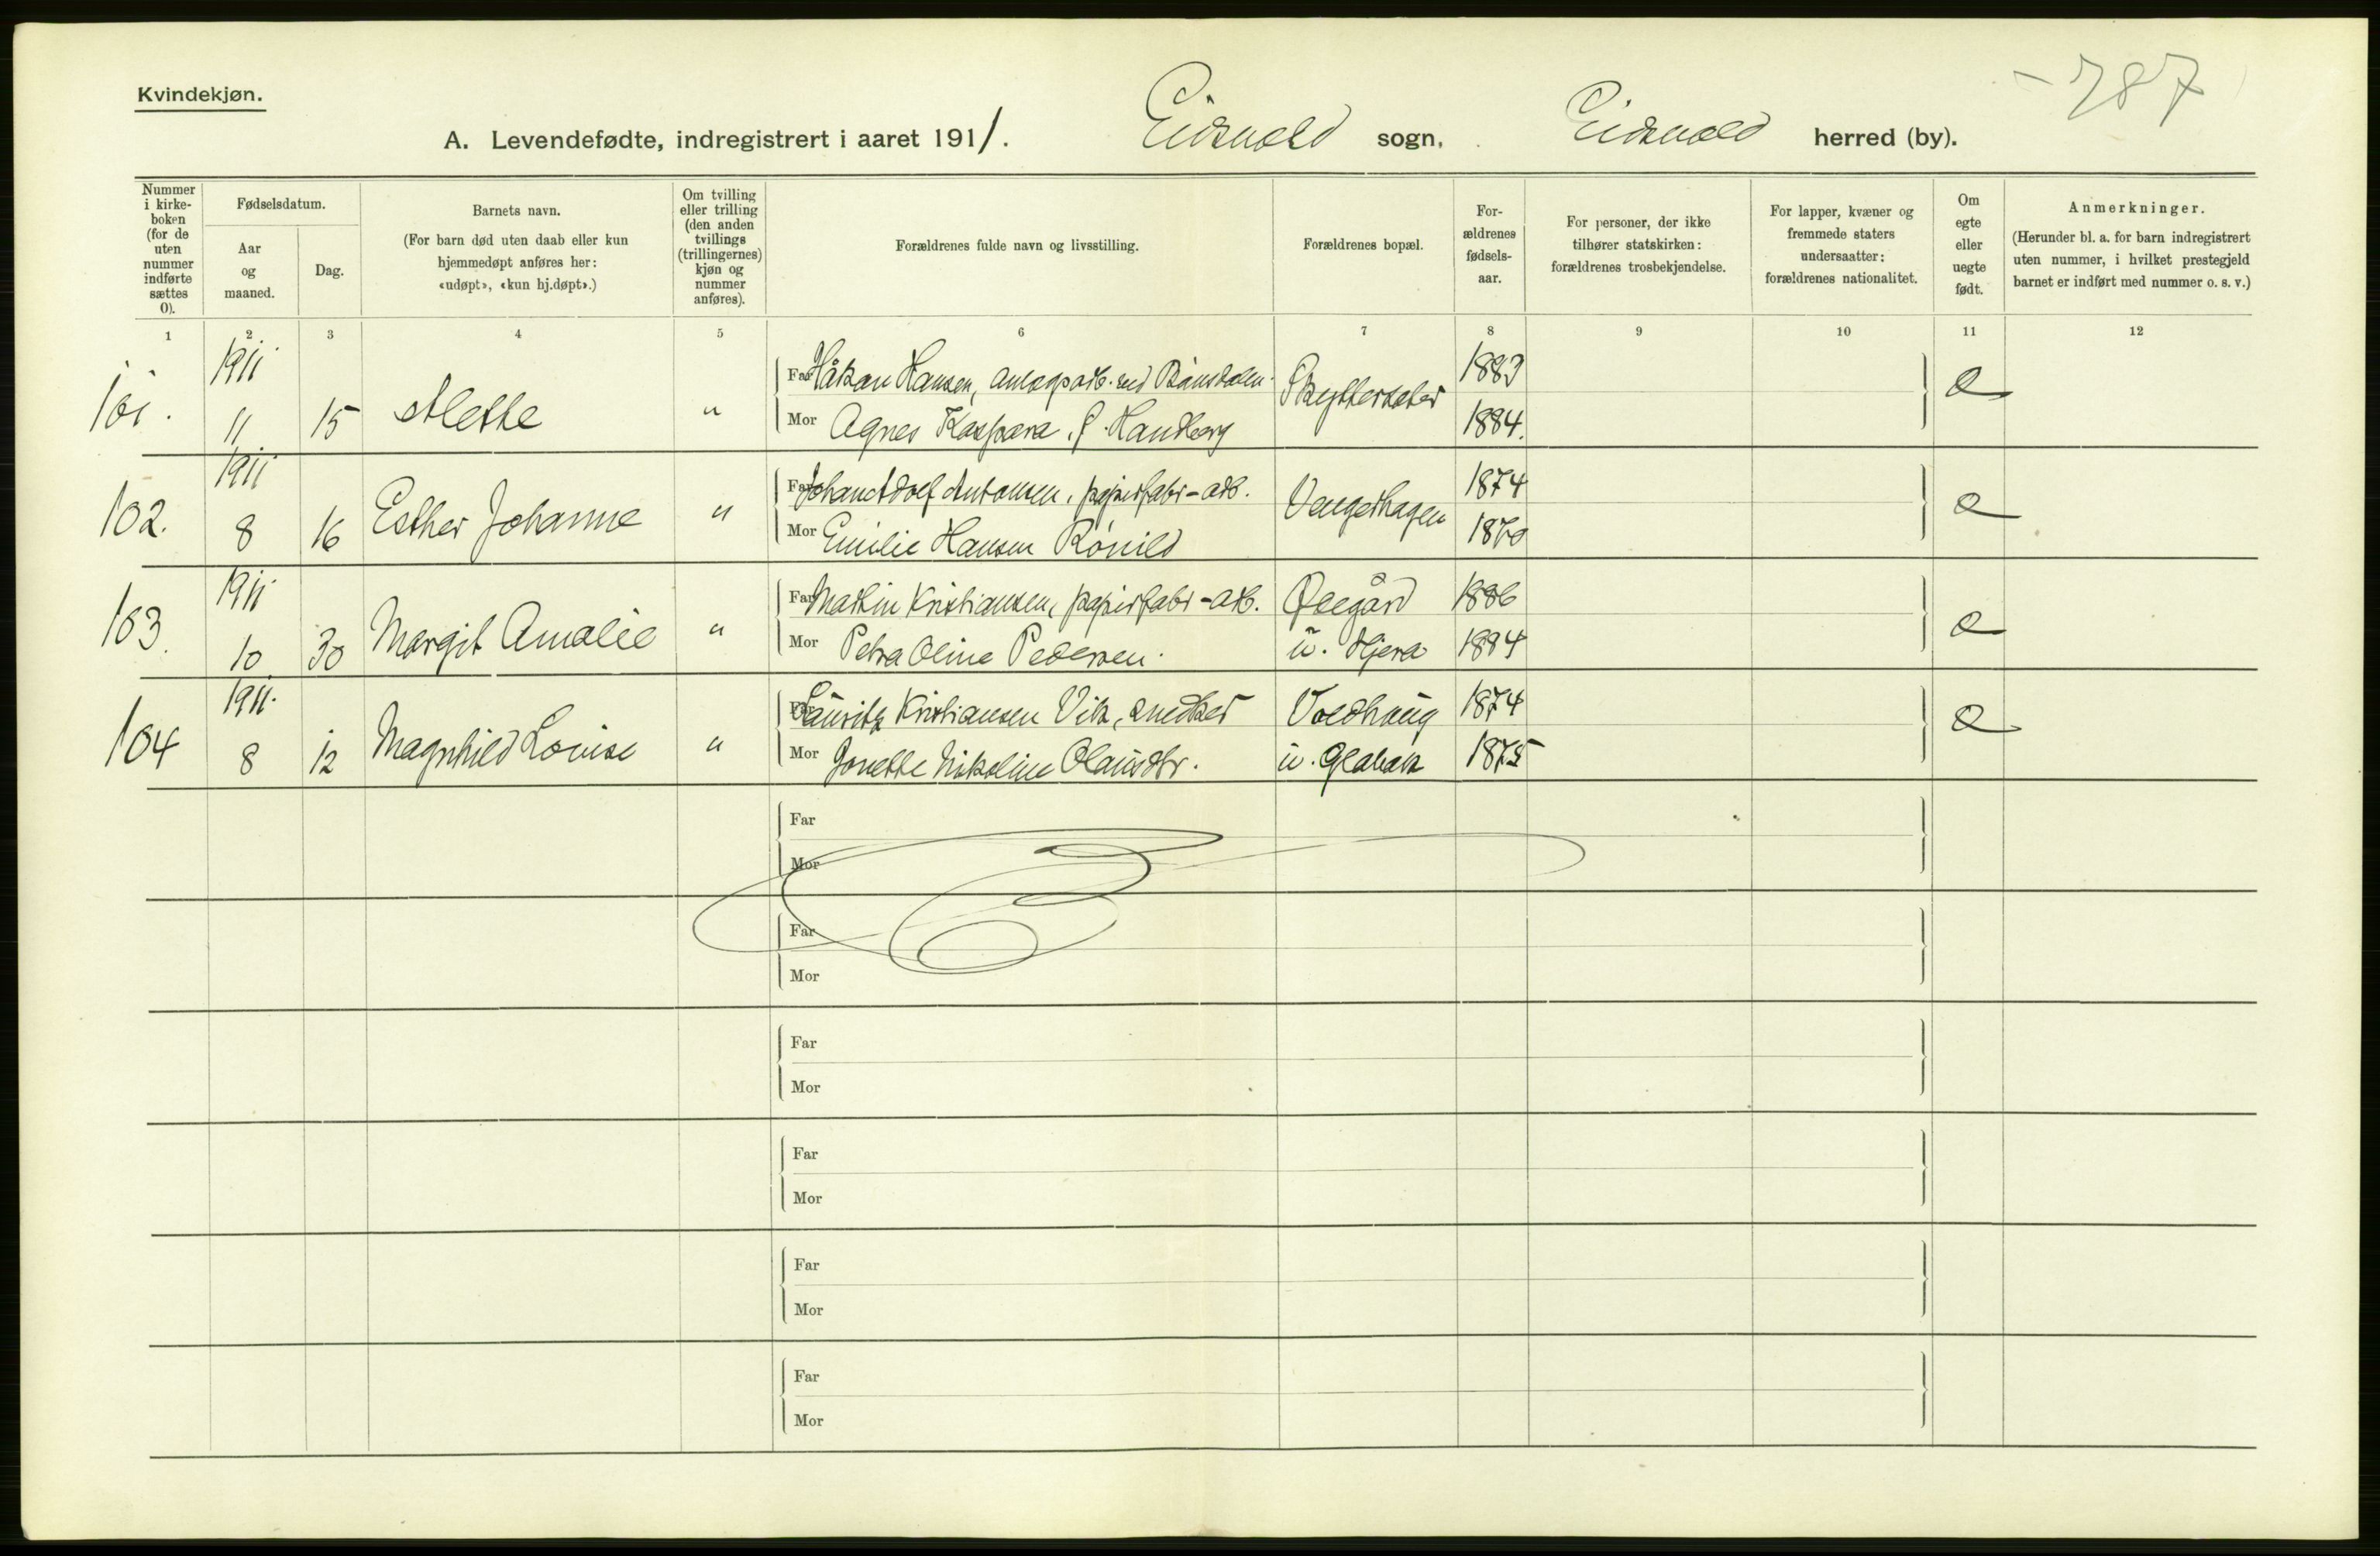 Kvindekjøn.
787
A. Levendefødte, indregistrert i aaret 1911. Eidsvold sogn, Eidsvold herred (by).
Nummer i kirke- boken (for de uten nummer indførte sættes 0).
Fødselsdatum.
Aar og maaned.
Dag.
Barnets navn.
(For barn død uten daab eller kun hjemmedøpt anføres her: «udøpt», «kun hj.døpt».)
Om tvilling eller trilling (den anden tvillings (trillingernes) kjøn og nummer anføres).
Forældrenes fulde navn og livsstilling.
Forældrenes bopæl.
For- ældrenes fødsels- aar.
For personer, der ikke tilhører statskirken: forældrenes trosbekjendelse.
For lapper, kvæner og fremmede staters undersaatter: forældrenes nationalitet.
Om egte eller uegte født.
Anmerkninger.
(Herunder bl. a. for barn indregistrert uten nummer, i hvilket prestegjeld barnet er indført med nummer o. s. v.)
1 2 3 4 5 6 7 8 9 10 11 12
101. 1911 11 15 Alethe " Far Håkan Hansen, anlægsarb. ved 1883 e
Mor Agnes Kaspara P. Handberg 1884.
102. 1911 8 16 Esther Johanne " Far Johan Adolf Antonsen, papirfabr-arb. Vengerhagen 1874 e
Mor Emilie Hansen 1870
103. 1911 10 30 Margit Amalie " Far Martin Kristiansen, papirfabr-arb. Ødegård 1886 e
Mor Petra Oline Pedersen. u. 1884
104 1911. 8 12 Magnhild Louise " Far Lauritz Kristiansen Vik, snedker Voldhaug 1874 e
Mor Jonette Nikoline Olausdtr. u. 1875
Far
Mor
Far
Mor
Far
Mor
Far
Mor
Far
Mor
Far
Mor